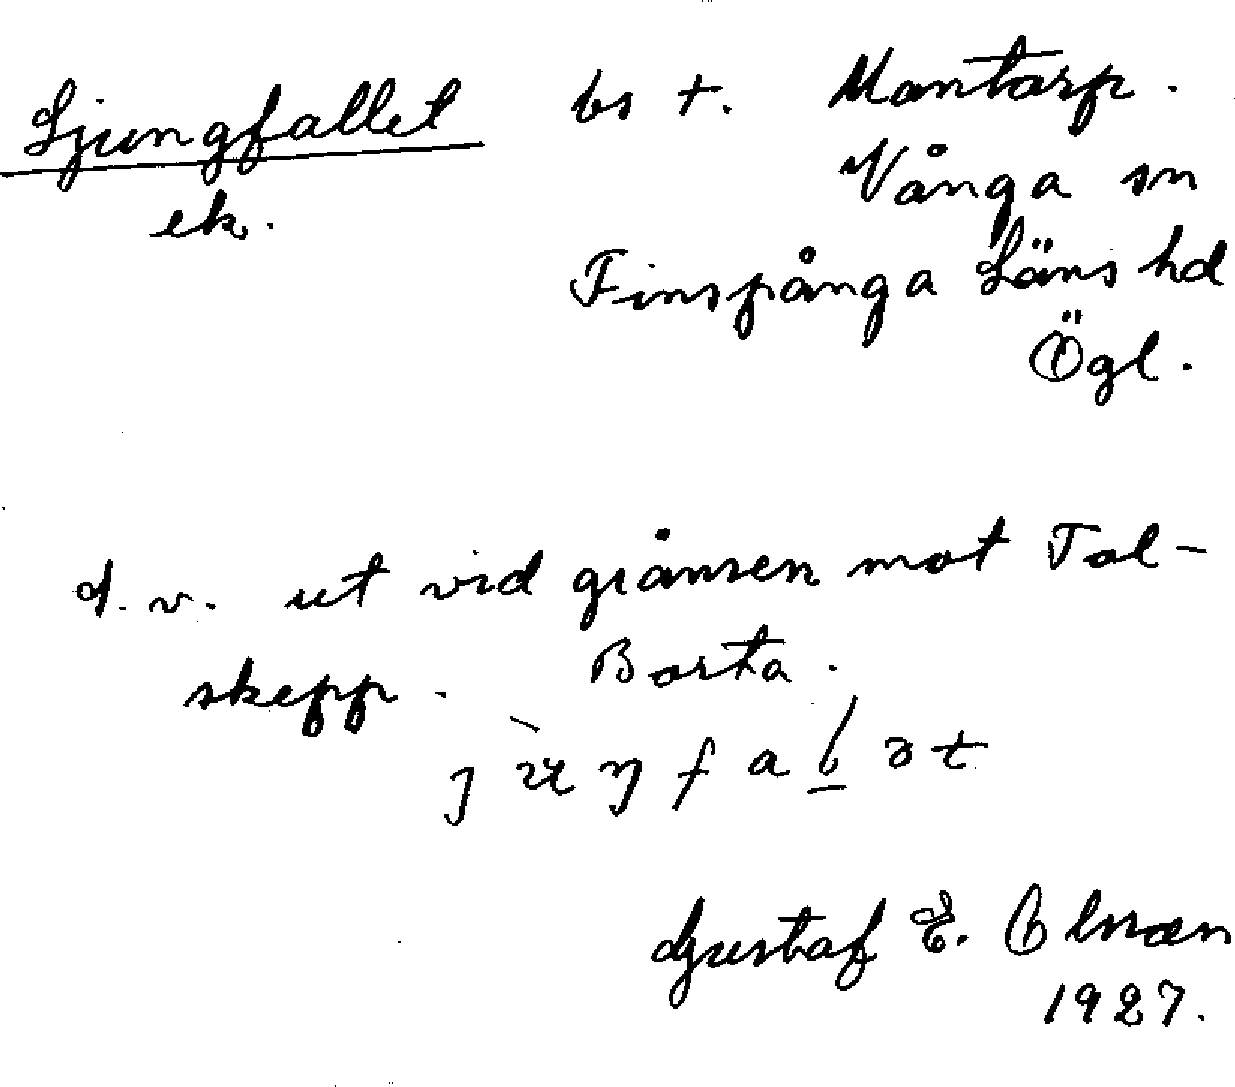 Ljungfallet bs t. Mantarp.
ek. Vånga sn
Finspånga Läns hd
Ögl.
d. v. ut vid gränsen mot Tal-
skepp. Borta.
Gustaf E. Olsson
1927.